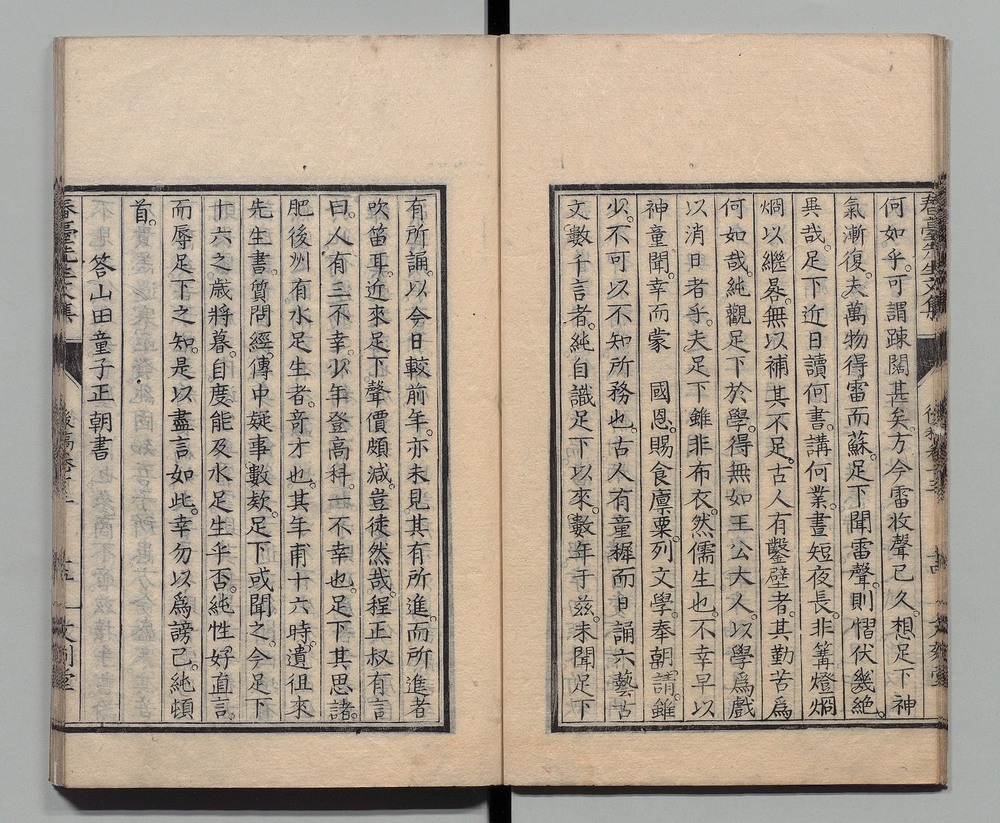 何如乎。可謂疎闊甚矣。方今雷收聲已久。想足下神
氣漸復。夫萬物得雷而蘇。足下聞雷聲。則慴伏幾絶。
異哉。足下近日讀何書。講何業。晝短夜長。非篝燈焫
燭以繼晷。無以補其不足。古人有鑿壁者。其勤苦爲
何如哉。純觀足下於學。得無如王公大人。以學爲戲
以消日者乎。夫足下雖非布衣。然儒生也。不幸早以
神童聞。幸而蒙 國恩。賜食廩粟。列文學。奉朝請。雖
少。不可以不知所務也。古人有童穉而日誦六藝古
文數千言者。純自識足下以來。數年于兹。未聞足下
有所誦。以今日較前年。亦未見其有所進。而所進者
吹笛耳。近來足下聲價頗減。豈徒然哉。程正叔有言
曰。人有三不幸。少年登高科。一不幸也。足下其思諸。
肥後州有水足生者。奇才也。其年甫十六時。遺徂來
先生書。質問經傳中疑事數欵。足下或聞之。今足下
十六之歳將暮。自度能及水足生乎否。純性好直言。
而辱足下之知。是以盡言如此。幸勿以爲謗己。純頓
首。
答山田童子正朝書
春臺先生文集
後稿卷
十五
文刻堂
春臺先生文集
後稿卷
十四
文刻堂